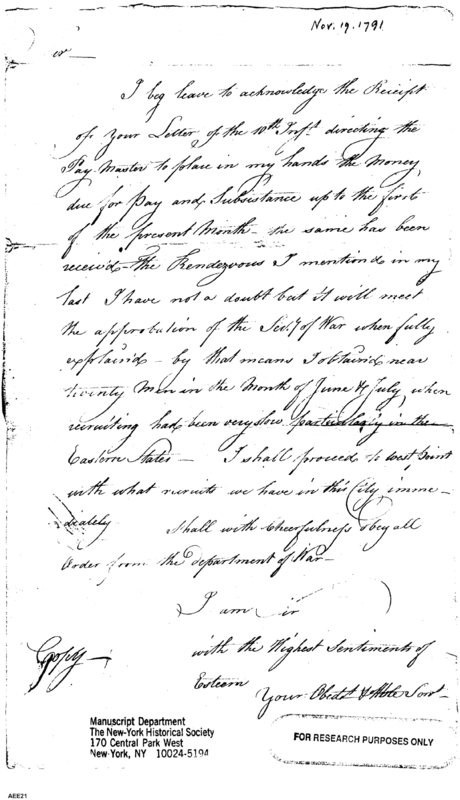 Nov. 19. 1791
I beg leave to acknowledge the Reciept
of your Letter of the 10th Inst. directing the
Pay Master to place in my hands the Money,
due for Pay and Subsistance up to the first
of the present Month - the same has been
receivd - the Rendezvous I mentiond in my
last I have not a doubt but it will meet
the approbation of the Secy. of War when fully
explaind - by that means I obtaind near
twenty Men in the Month of June & July, when
recruiting had been very slow particularly in the
Eastern States - I shall proceed to West Point
with what recruits we have in this City, imme-
diately shall with Cheerfulness obey all
Order from the department of War -
I am Sir
with the Highest Sentiments of
Esteem
Copy
Your Obedt. & Hble Servt.
Manuscript Department
The New-York Historical Society
170 Central Park West
New York, NY 10024-5194
FOR RESEARCH PURPOSES ONLY
AEE21